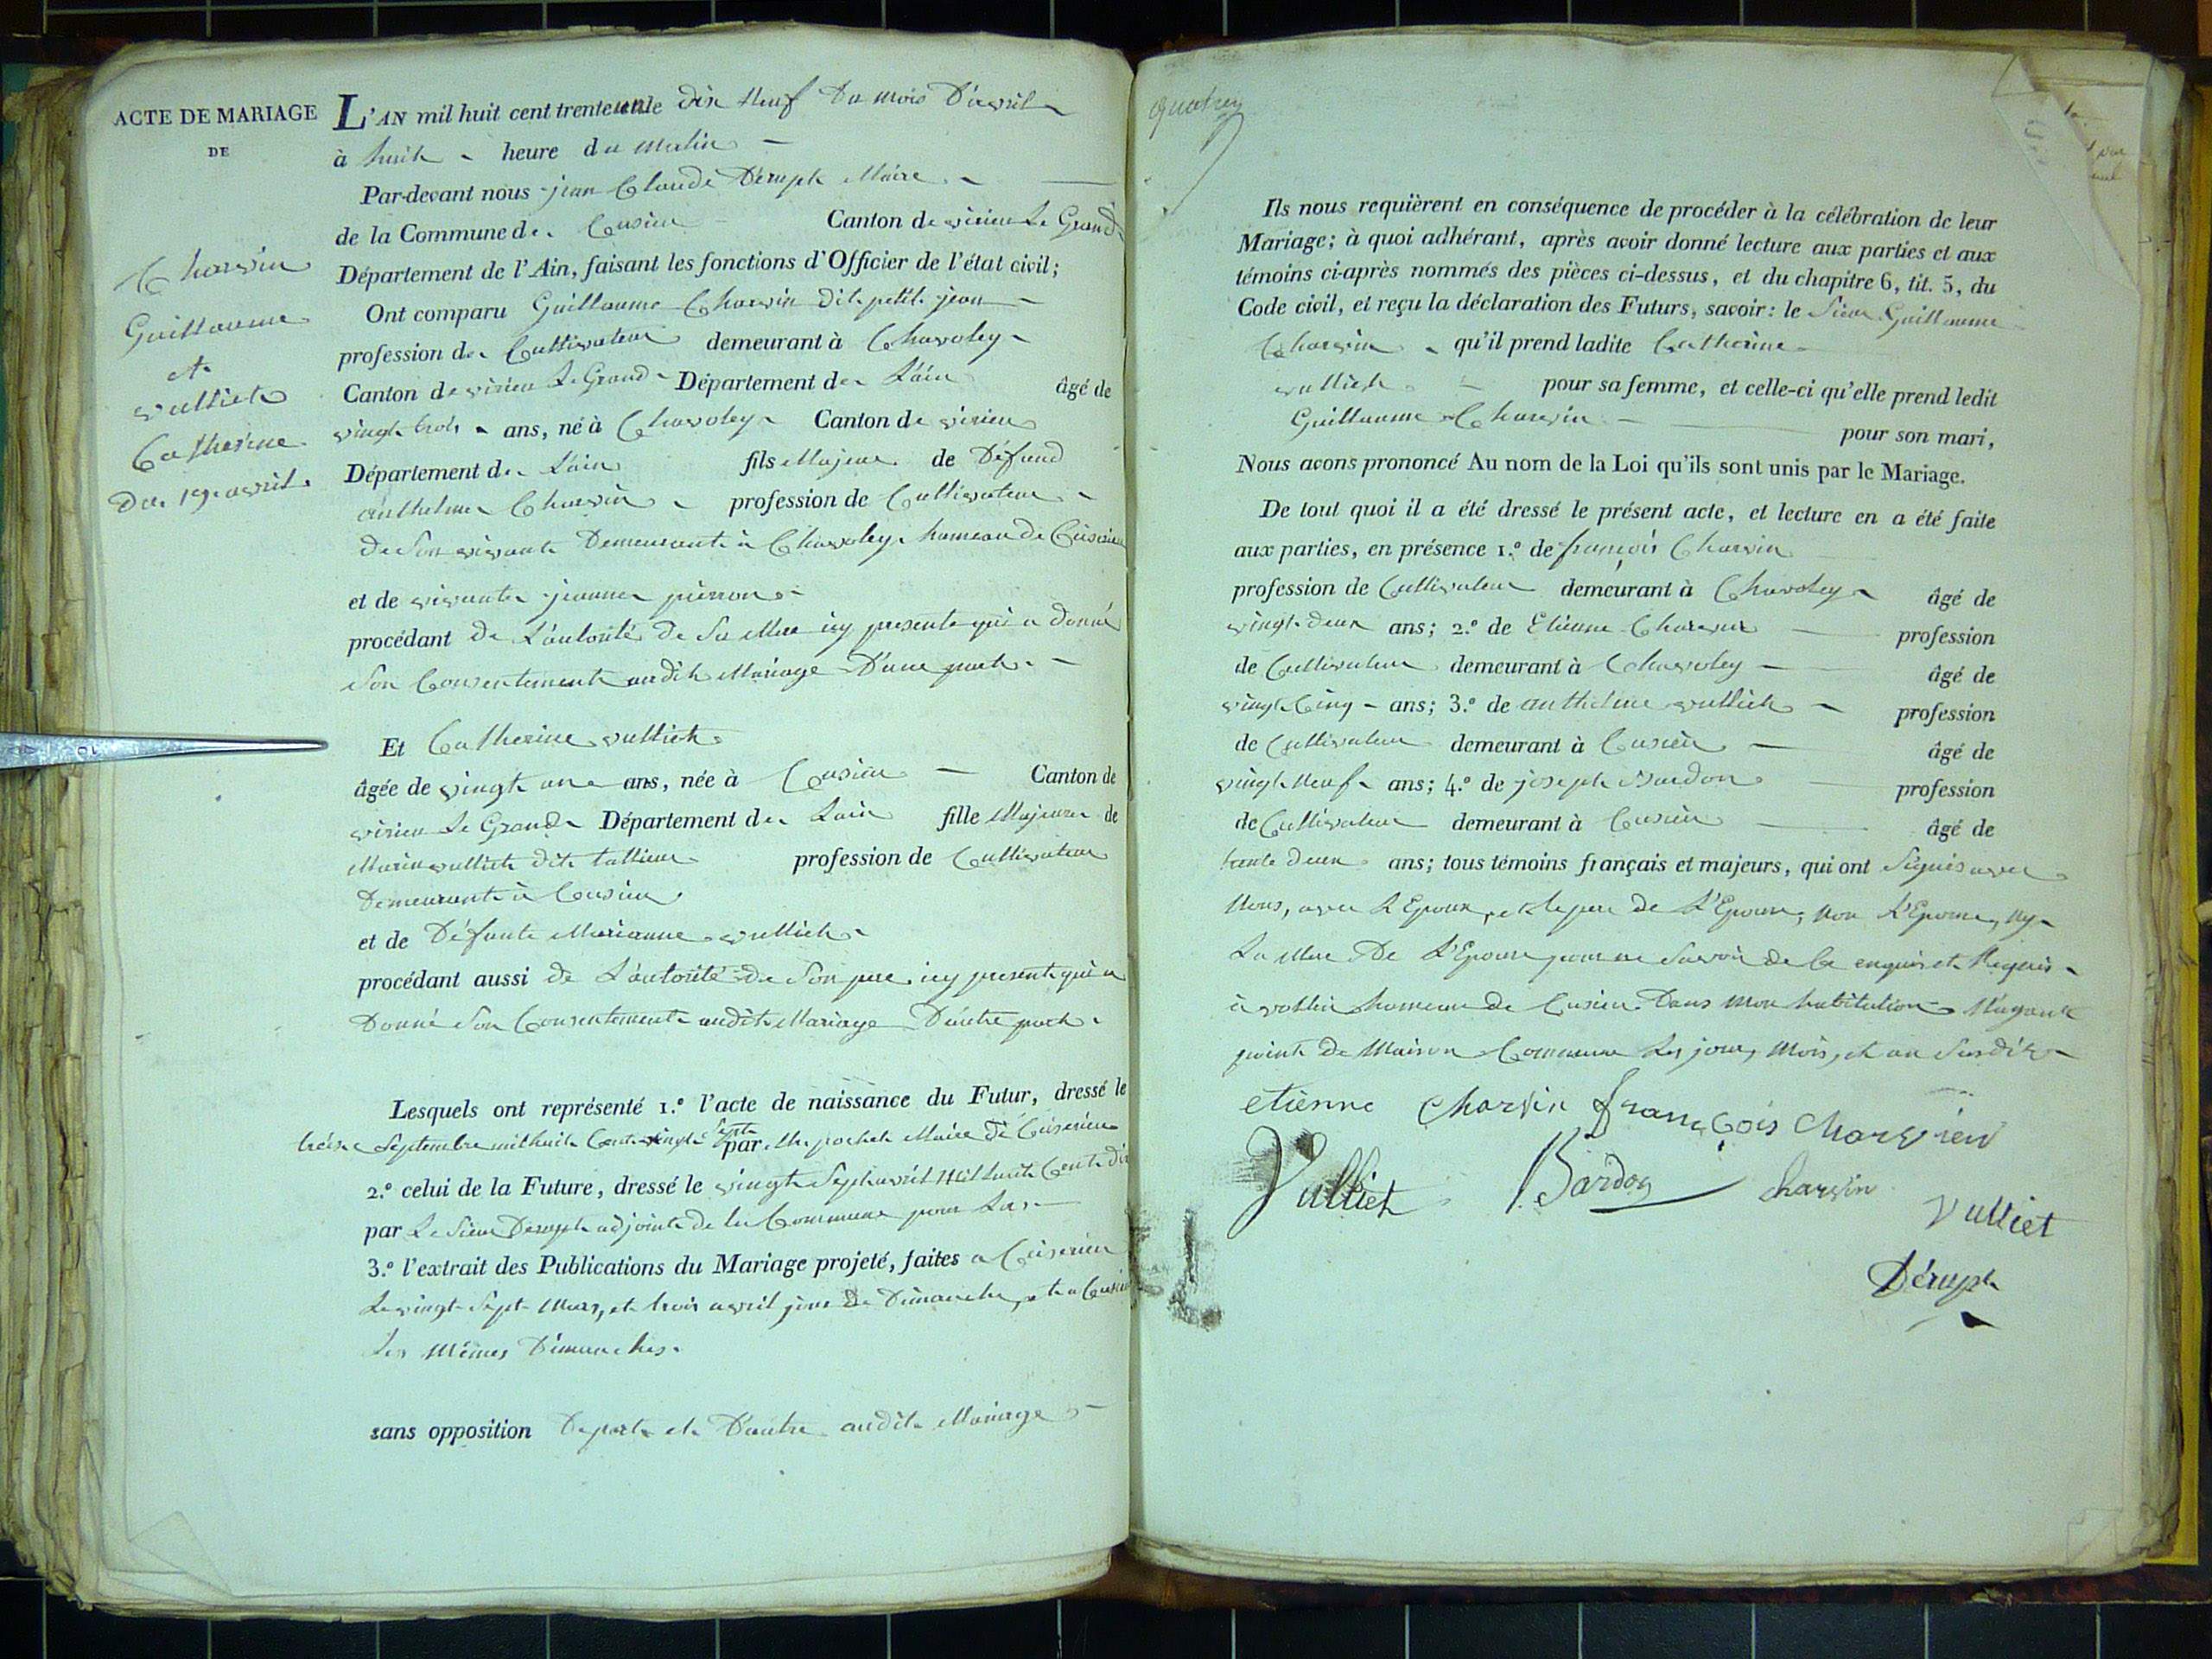 ACTE DE MARIAGE
DE
Charvin
Guillaume
et
vulliet
Catherine
Du 19 avril
L'AN mil huit cent trente un le dix Neuf Du mois D'avril
à huit heure du Matin
Par-devant nous jean Claude Dérupt Maire
de la Commune de Cusieu Canton de virieu Le Grand
Département de l'Ain, faisant les fonctions d'Officier de l'état civil;
Ont comparu Guillaume Charvin dit petit jean
profession de Cultivateur demeurant à Chavoley
Canton de virieu Le Grand Département de L'ain âgé de
vingt trois ans, né à Chavoley Canton de virieu
Département de L'ain fils Majeur de Défund
anthelme Charvin profession de Cultivateur
De Son vivant Demeurant à Chavoley hameau de Ceiserieu
et de vivante jeanne pierron
procédant de L'autorité de Sa Mere icy presente qui a donné
Son Consentement audit Mariage D'une part
Et Catherine vulliet
âgée de vingt une ans, née à Cusieu Canton de
virieu Le Grand Département de Lain fille Majeure de
Marin vulliet dit profession de Cultivateur
Demeurant à Cusieu
et de Défunte Marianne vulliet
procédant aussi de L'autorité de Son pere icy present qui a
Donné Son Consentement audit Mariage D'autre part
Lesquels ont représenté 1.º l'acte de naissance du Futur, dressé le
treize Septembre mil huit Cent Sept par Mr pochet Maire de Ceiserieu
2.º celui de la Future, dressé le vingt Sept avril Mil huit Cent dix
par Le Sieur Dérupt adjoint de la Commune pour Lar
3.º l'extrait des Publications du Mariage projeté, faites a Ceiserieu
Le vingt Sept Mars, et trois avril jour De Dimanche, et a Cusieu
Les Mêmes Dimanches.
sans opposition De part et D'autre audit Mariage
quatre
Ils nous requièrent en conséquence de procéder à la célébration de leur
Mariage; à quoi adhérant, après avoir donné lecture aux parties et aux
témoins ci-après nommés des pièces ci-dessus, et du chapitre 6, tit. 5, du
Code civil, et reçu la déclaration des Futurs, savoir: le Sieur Guillaume
Charvin qu'il prend ladite Catherine
vulliet pour sa femme, et celle-ci qu'elle prend ledit
Guillaume Charvin pour son mari,
Nous avons prononcé Au nom de la Loi qu'ils sont unis par le Mariage.
De tout quoi il a été dressé le présent acte, et lecture en a été faite
aux parties, en présence 1.º de françois Charvin
profession de Cultivateur demeurant à Chavoley âgé de
vingt deux ans; 2.º de Etienne Charvin profession
de Cultivateur demeurant à Chavoley âgé de
vingt Cinq ans; 3.º de anthelme vulliet profession
de Cultivateur demeurant à Cusieu âgé de
vingt Neuf ans; 4.º de joseph Bardon profession
de Cultivateur demeurant à Cusieu âgé de
trente deux ans; tous témoins français et majeurs, qui ont Signés avec
Nous, avec L'Epoux, et le pere de L'Epouse, non L'Epouse, Ny
La Mere De L'Epoux pour ne Savoir de Ce enquis et Requis
à vollin hameau de Cusieu Dans Mon habitation N'ayant
point de Maison Commune Les jour, Mois, et an Susdits
etienne Charvin françois Charvien
Vulliet Bardon charvin Vulliet
Dérupt